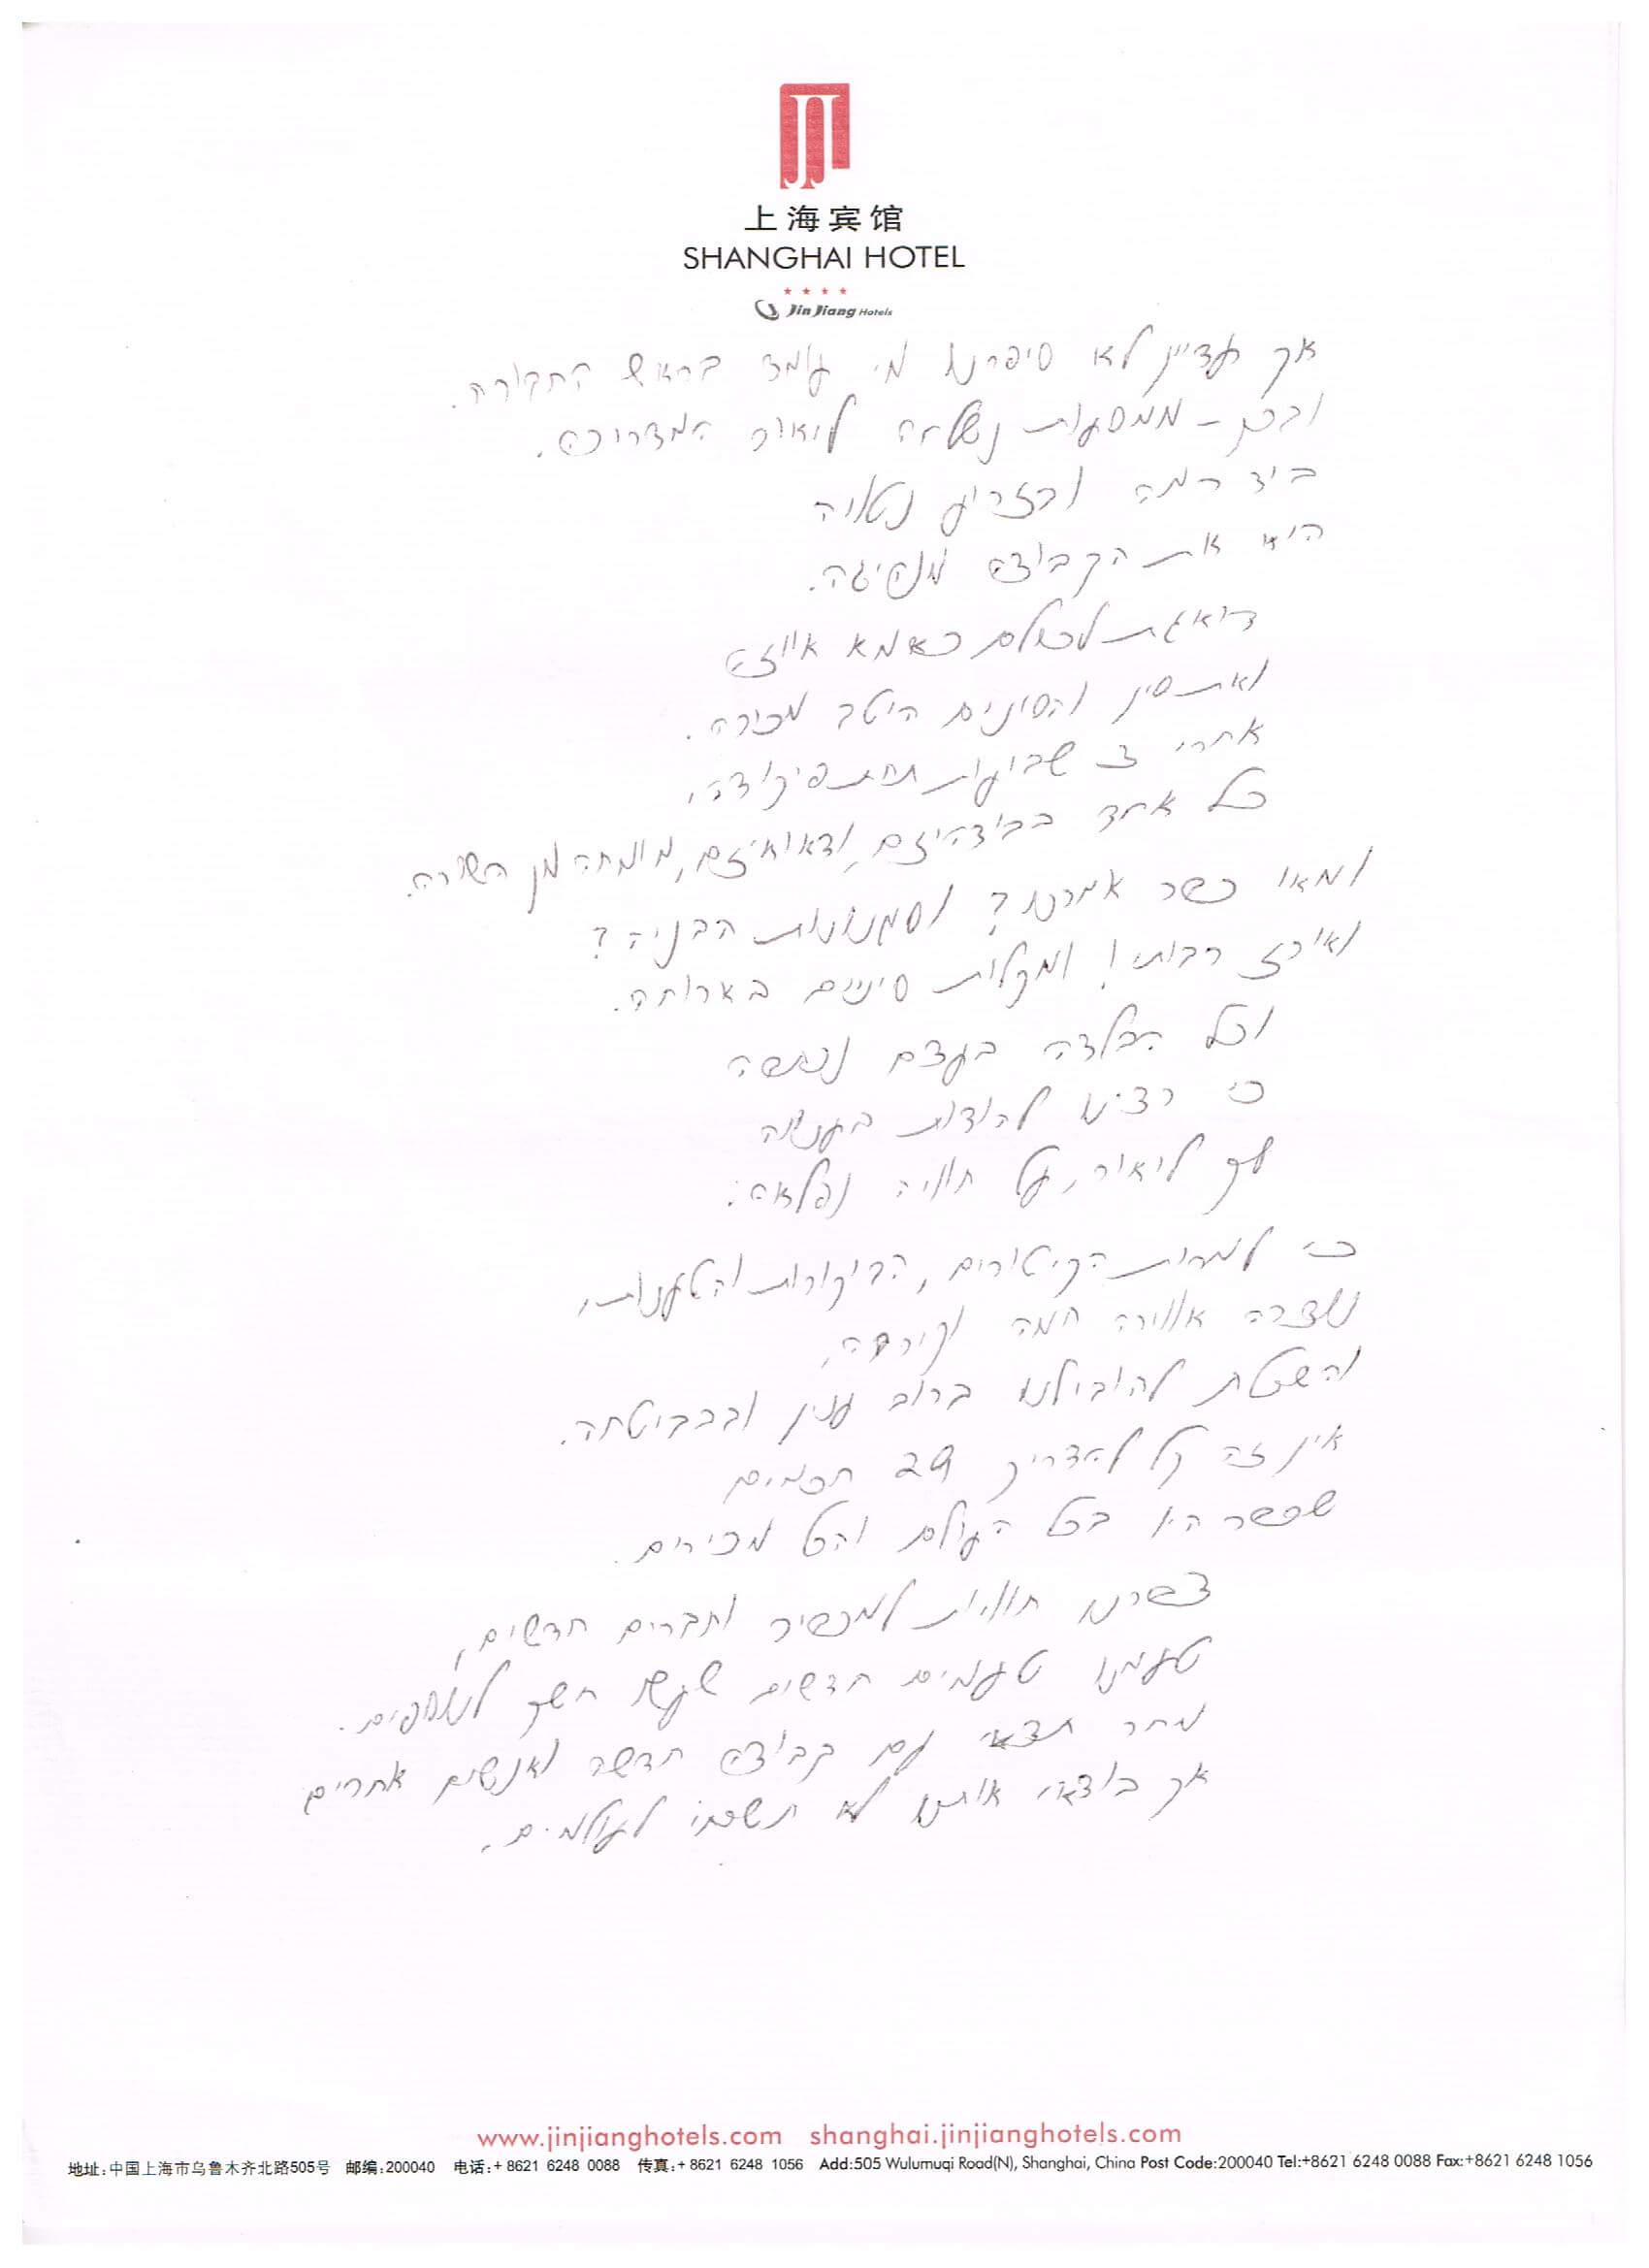 上海宾馆
SHANGHAI HOTEL
JinJiang Hotels
אך עדיין לא סיפרנו מי עומד בראש החבורה.
ובכן - ממסעות נשלחה ליאור המדריכה.
ביד רמה ובזרוע נטויה
היא את הקבוצה מנהיגה.
דואגת לכולם כאמא אווזה
ואת סין והסינים היטב מכירה.
אחרי 3 שבועות תחת פיקודה,
כל אחד בבודהיזם, ודאואיזם, מומחה מן השורה.
ומאו כבר אמרנו? וסגנונות הבניה?
ואורז רבותי! ומקלות סיניים בארוחה.
וכל הבלדה בעצם נכתבה
כי רצינו להודות בענווה
לך ליאור, על חוויה נפלאה.
כי למרות הקיטורים, הביקורות והטענות,
נוצרה אווירה חמה וקירבה,
והשכלת להובילנו ברוב ענין ובבביטחה.
אין זה קל להדריך 29 חכמים
שכבר היו בכל העולם והכל מכירים.
צברנו חוויות למכביר וחברים חדשים,
טעמנו טעמים חדשים שעשו חשק לנוספים.
מחר תצאי עם קבוצה חדשה ואנשים אחרים
אך בודאי אותנו לא תשכחי לעולמים.
www.jinjianghotels.com shanghai.jinjianghotels.com
地址:中国上海市乌鲁木齐北路505号 邮编:200040 电话:+ 8621 6248 0088 传真:+ 8621 6248 1056 Add:505 Wulumuqi Road(N), Shanghai, China Post Code:200040 Tel:+8621 6248 0088 Fax:+8621 6248 1056